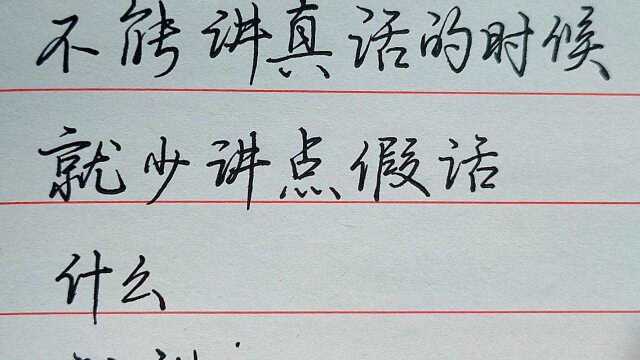 不能讲真话的时候
就少讲点假话
什么